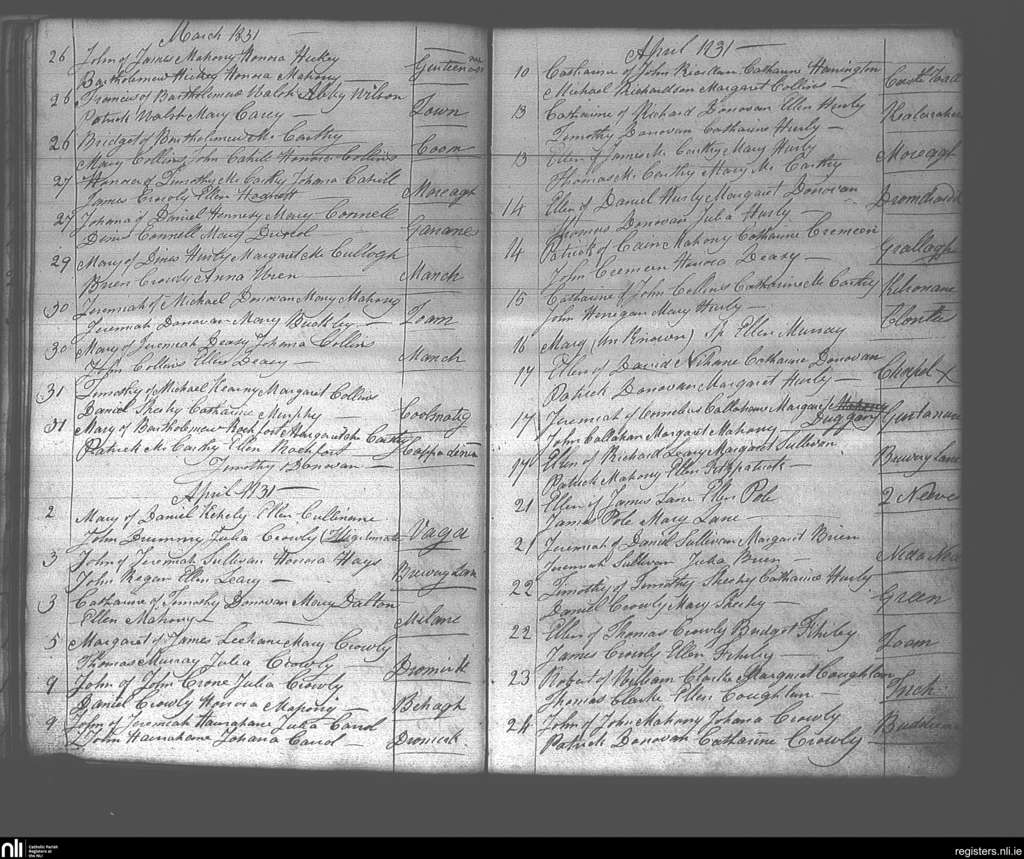 March 1831
26 John of James Mahony Honora Hickey
Bartholemew Hickey Honora Mahony
26 Francis of Bartholemew Walsh Abby Wilson
Patrick Walsh Mary Carey Town
26 Bridget of Bartholemew Mc Carthy
Mary Collins John Cahill Honora Collins Coom
27 Honora of Timothy Mc Carthy Johana Cahill
James Crowly Ellen Moreagh
27 Johana of Daniel Hennesy Mary Connell
Denis Connell Mary Garanes
29 Mary of Dinis Hurly Margaret Mc Cullogh
Crowly Anna Manch
30 Jeremiah of Michael Donovan Mary Mahony
Jeremiah Donovan Mary Buckley Toam
30 Mary of Jeremiah Deasy Johana Collins
John Collins Ellen Deasy Manch
31 Timothy of Michael Kearny Margaret Collins
Daniel Sheehy Catharine Murphy
31 Mary of Bartholemew Rochfort Margaret Mc Carthy
Patrick Mc Carthy Ellen Rochford
Timothy Donovan
April 1831
2 Mary of Daniel Kehely Ellen Cullinane
John Drummy Julia Crowly (Illegitimate Vaga
3 John of Jeremiah Sullivan Honora Hays
John Regan Ellen Leary Breway Lane
3 Catharine of Timothy Donovan Mary Dalton
Ellen Mahony Milane
5 Margaret of James Leehane Mary Crowly
Thomas Murray Julia Crowly
9 John of John Crone Julia Crowly
Daniel Crowly Honora Mahony Behagh
9 John of Jeremiah Hanrahane Julia Carrol
John Hanrahane Johana Carrol
April 1831
10 Catharine of John Riordan Catharine Harrington
Michael Richardson Margaret Collins
13 Catharine of Richard Donovan Ellen Hurly
Timothy Donovan Catharine Hurly
13 Ellen of James Mc Carthy Mary Hurly
Thomas Mc Carthy Mary Mc Carthy Moreagh
14 Ellen of Daniel Hurly Margaret Donovan
Thomas Donovan Julia Hurly
14 Patrick of Caine Mahony Catharine Cremeen
John Cremeen Honora Deasy Grallagh
15 Catharine of John Collins Catharine Mc Carthy
John Henigan Mary Hurly Kilronane
16 Mary (Un Known) Sp Ellen Murray
17 Ellen of David Nihane Catharine Donovan
Patrick Donovan Margaret Hurly Chapel X
17 Jeremiah of Cornelius Callahane Margaret Mahony
Duggan
John Callahan Margaret Mahony
17 Ellen of Richard Leary Margaret Sullivan
Patrick Mahony Ellen Fitzpatrick Breway Lane
21 Ellen of James Lane Ellen Pole
James Pole Mary Lane
21 Jeremiah of Daniel Sullivan Margaret Brien
Jeremiah Sullivan Julia Brien
22 Timothy of Timothy Sheehy Catharine Hurly
Daniel Crowly Mary Sheehy Green
22 Ellen of Thomas Crowly Bridget Fehely
James Crowly Ellen Fehely Toam
23 Robert of William Clarke Margaret Coughlan
Thomas Clarke Ellen Coughlan Inch
24 John of John Mahony Johana Crowly
Patrick Donovan Catharine Crowly
nli Catholic Parish
Registers at
the NLI
registers.nli.ie